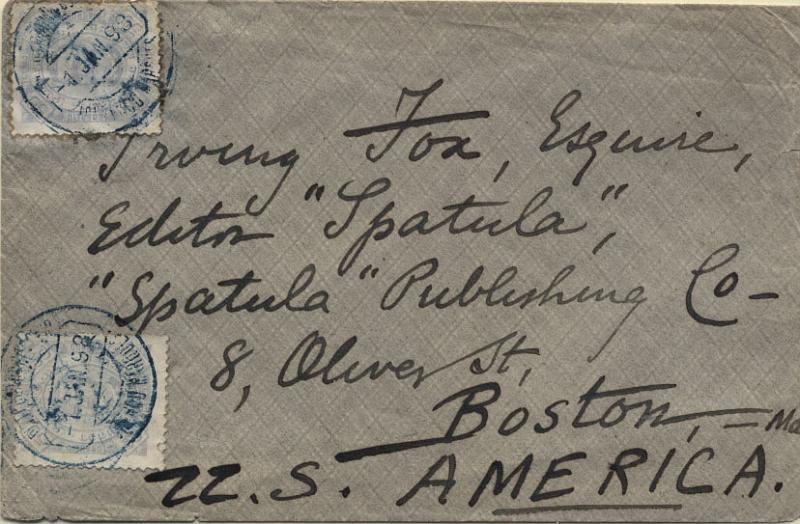 1 JAN. 98
Irving Fox, Esquire,
Editor "Spatula",
"Spatula" Publishing Co-
8, Oliver St,
Boston, = Ma
U.S. AMERICA.
1 JAN. 98